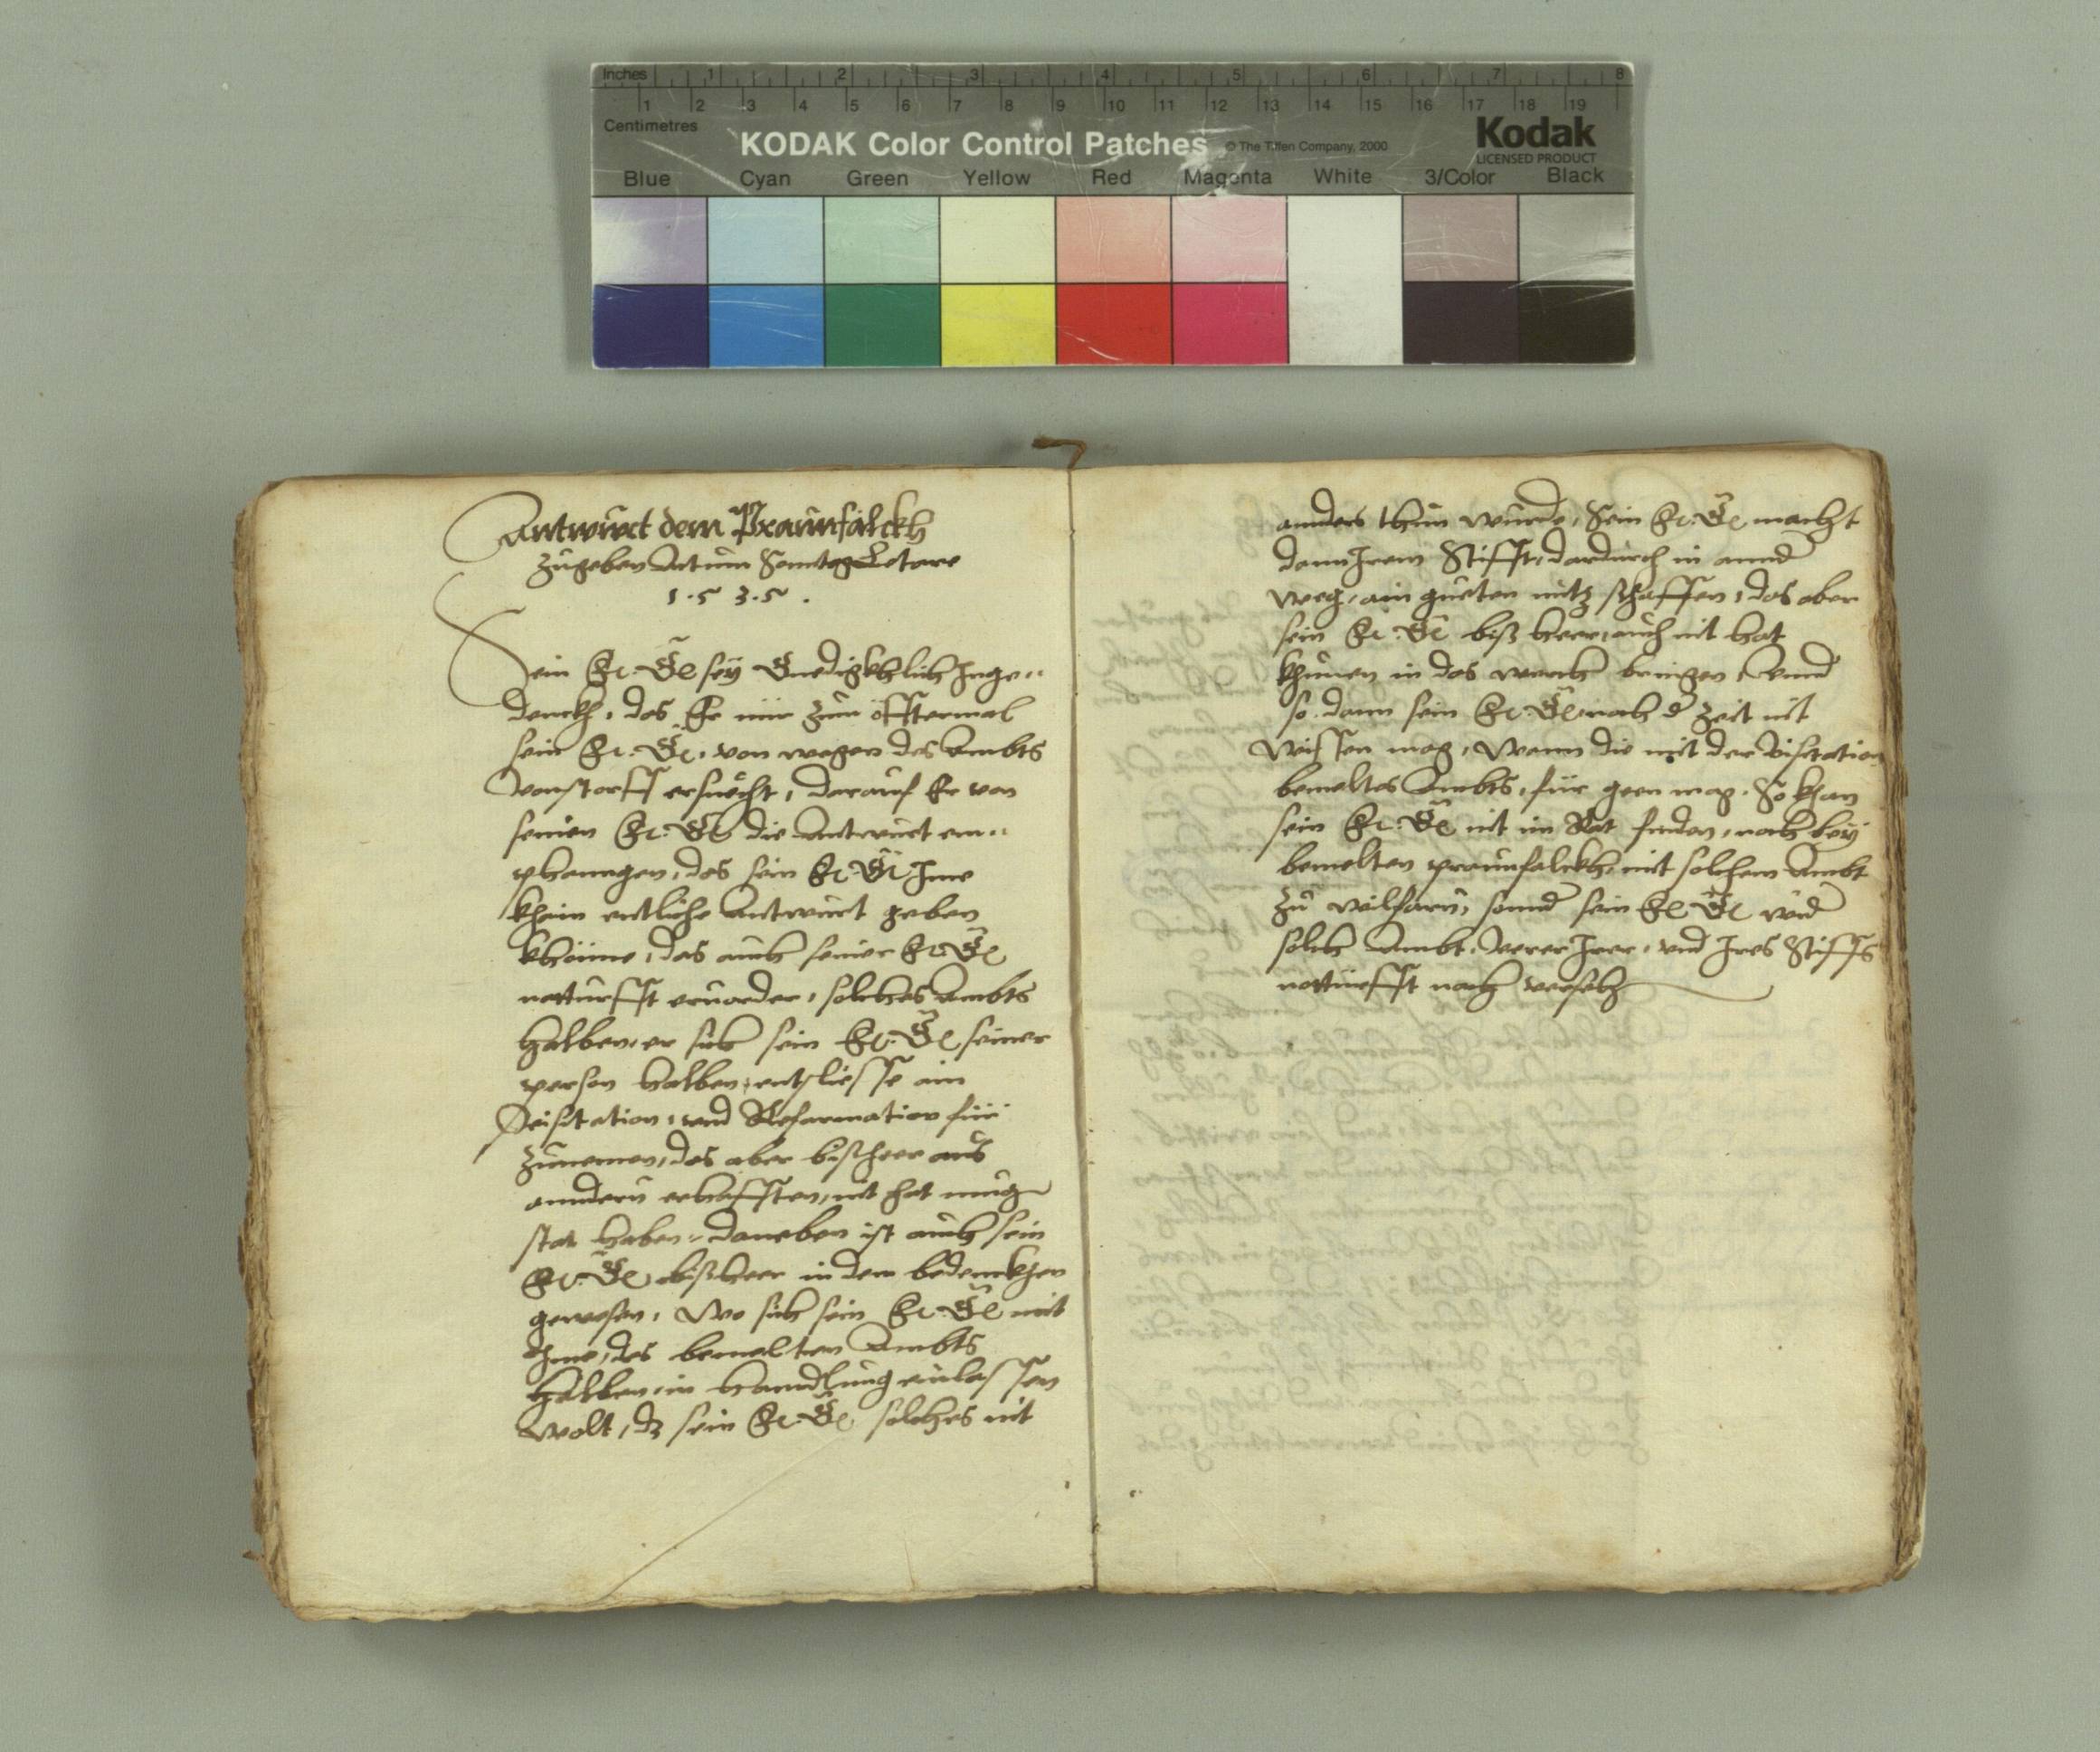 Inches 1 2 3 4 5 6 7 8
1 2 3 4 5 6 7 8 9 10 11 12 13 14 15 16 17 18 19
Centimetres
KODAK Color Control Patches © The Tiffen Company, 2000
Kodak
LICENSED PRODUCT
Blue Cyan Green Yellow Red Magenta White 3/Color Black
Antwurt dem Praunfalckh
zugeben Actum Sonntag Letare
1.5.3.5.
Sein F. G. sey Gnedigkhlich Inge-
denckh, das Er nun zum öfftermal
sein F. G. von wegen des Ambts
Vonstorff ersuecht, darauf Er von
seinen F. G. die Antwurt em-
phanngen, das sein F. G. Ime
khain entliche Antwurt geben
khönne, das auch seiner F. G.
notturfft eruorder, solches Ambts
halben, er sich sein F. G. seiner
person halben, entsliesse ain
Visitation, vnd Reformation für
zunemen, das aber bißheer aus
anndern eehafften, nit hat mugen
stat haben, Daneben ist auch sein
F. G. bißheer in dem bedenckhen
gewesen, Wo sich sein F. G. mit
Ime, des bemelten Ambts
halben, in hanndlung einlassen
wolt, dz sein F. G. solches nit
annders thun wurde, Sein F. G. macht
dann Irem Stifft, dardurch in annd
weg, ain gueten nutz schaffen, das aber
sein F. G. biß heer, auch nit hat
khunen in das werch bringen, Vnnd
so dann sein F. G. noch d zeit nit
wissen mag, Wann die mit der Visitation
bemeltes Ambts, für geen mag. So khan
sein F. G. nit im Rat finden, noch bey
bemelten praunfalckh, mit solchem Ambt
zu wilfarn, sonnd sein F. G. wird
solch Ambt, verrer Irer, vnd Ires Stiffts
notturfft nach versehen